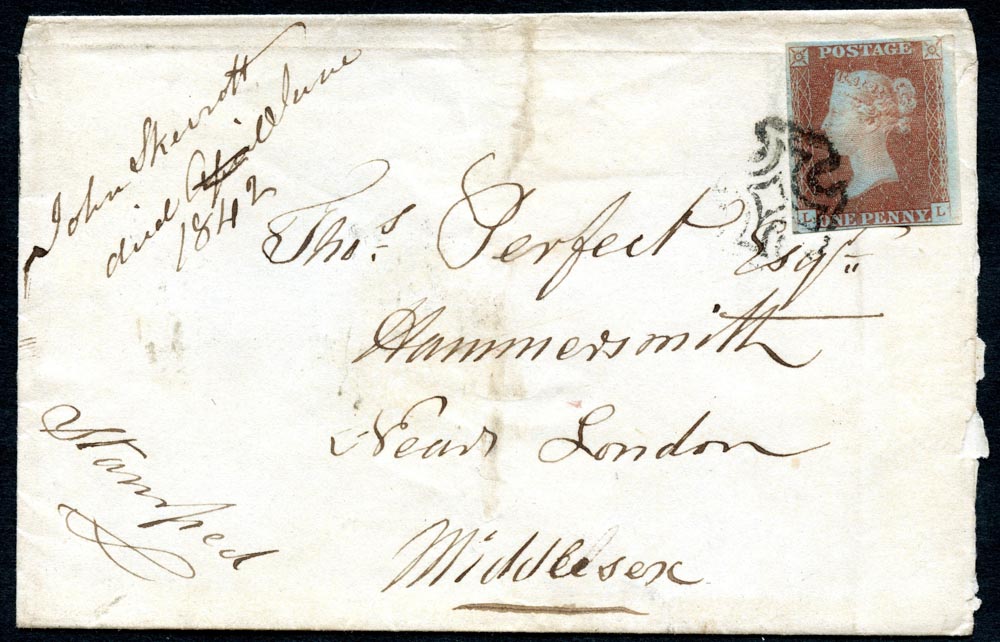 John Skerrott
died April June
1842
POSTAGE
L ONE PENNY L
Thos. Perfect Esqr.
Hammersmith
Near London
Middlesex
Stamped